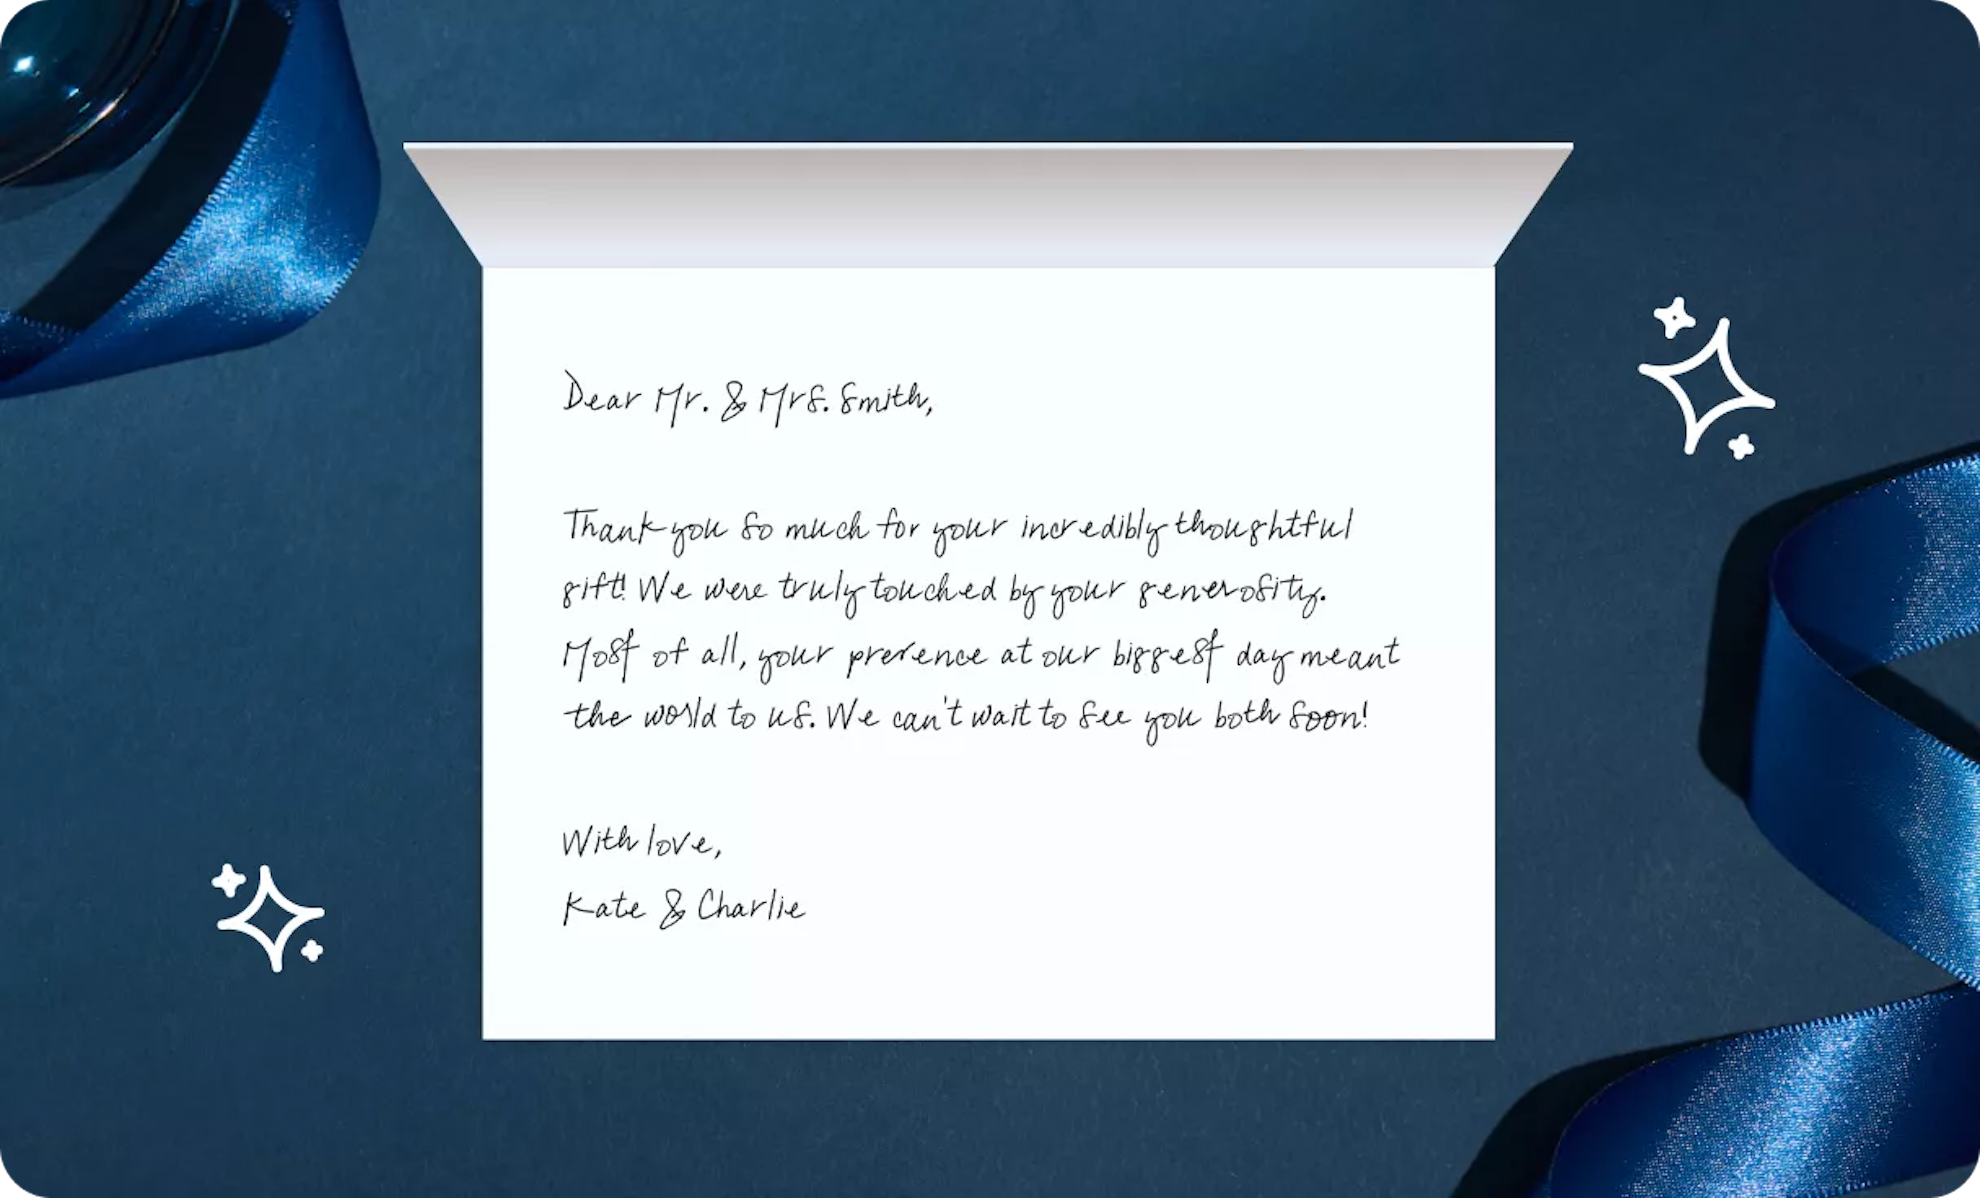 Dear Mr. & Mrs. Smith,
Thank you so much for your incredibly thoughtful
gift! We were truly touched by your generosity.
Most of all, your presence at our biggest day meant
the world to us. We can't wait to see you both soon!
With love,
Kate & Charlie